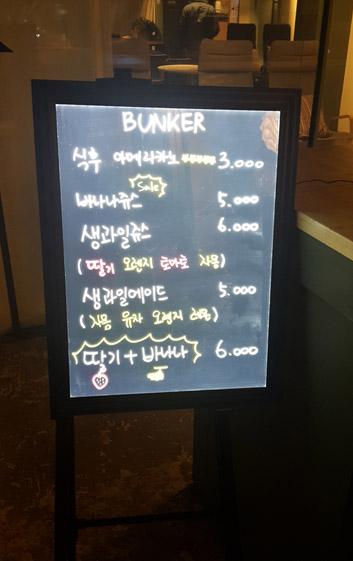 BUNKER
식후 아메리카노 3.000
Sale
바나나쥬스 5.000
생과일쥬스 6.000
(딸기 오렌지 토마토 자몽)
생과일에이드 5.000
(자몽 유자 오렌지 레몬)
딸기+바나나 6.000